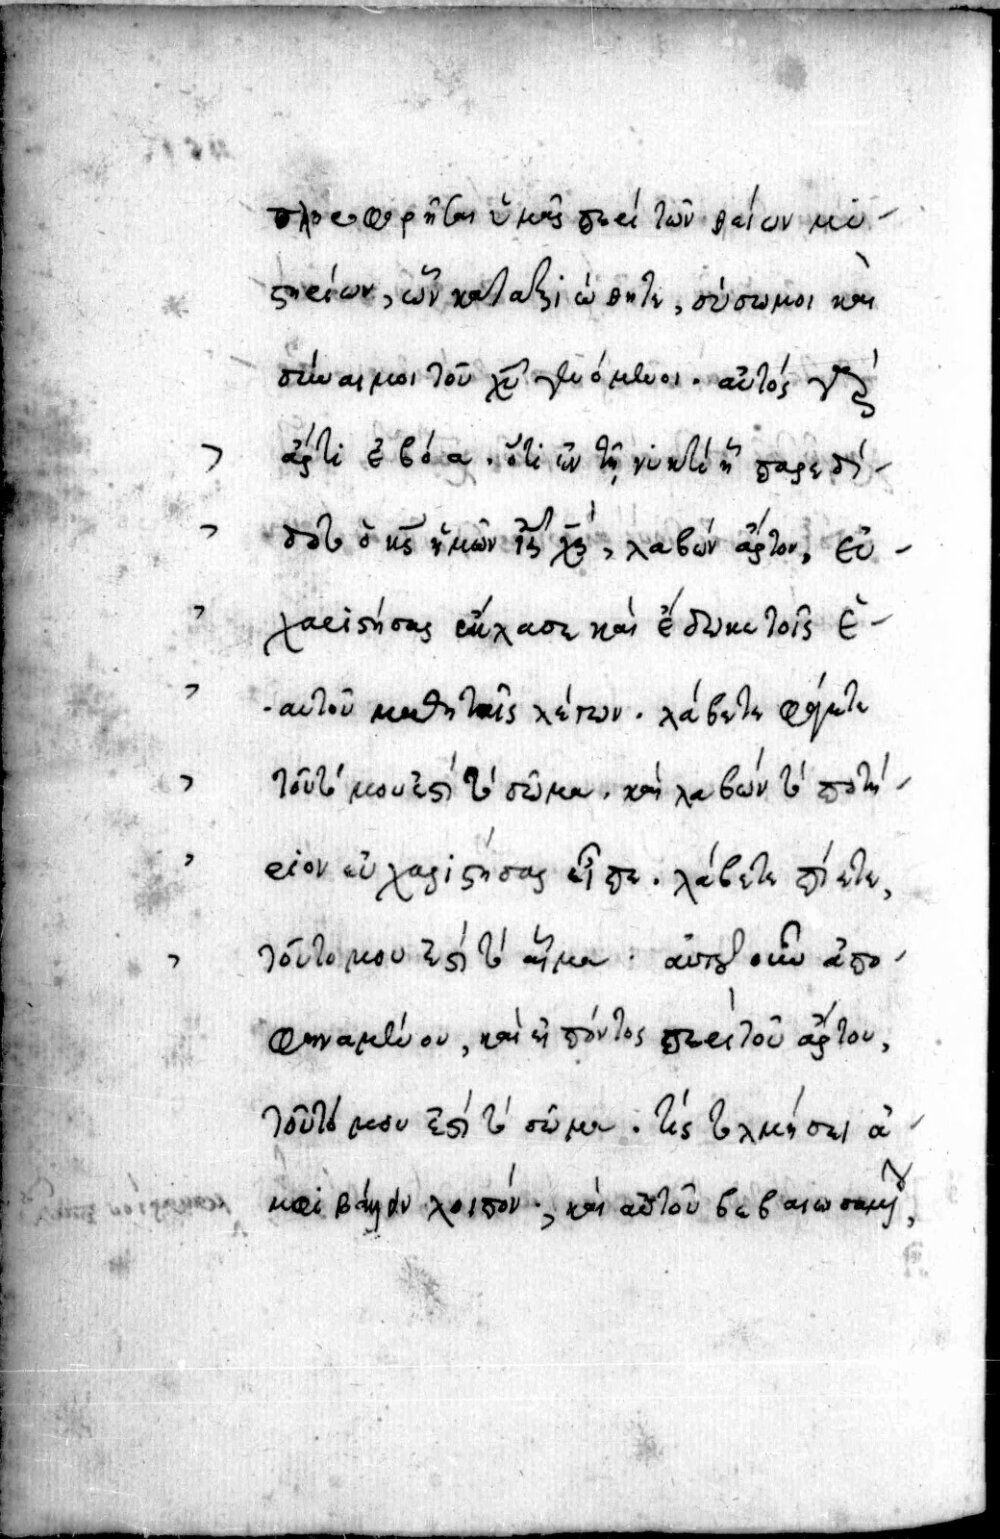 πληροφορῆσαι ὑμᾶς περὶ τῶν θείων μυ-
στηρίων, ὧν κατηξιώθητε, σύσωμοι καὶ
σύναιμοι τοῦ χῦ γενόμενοι. αὐτὸς γὰρ
ἀρτὶ ἐβόα. ὅτι ἐν τῇ νυκτὶ ᾗ παρεδί-
δοτο ὁ κς ἡμῶν ις χς, λαβὼν ἄρτον, εὐ-
χαριστήσας ἔκλασε καὶ ἔδωκε τοῖς ἑ-
αυτοῦ μαθηταῖς λέγων. λάβετε φάγετε
τοῦτό μου ἐστὶ τὸ σῶμα. καὶ λαβὼν τὸ ποτή-
ριον εὐχαριστήσας εἶπε. λάβετε πίετε,
τοῦτο μου ἐστὶ τὸ αἷμα. αὐτοῦ οὖν ἀπο-
φηναμένου, καὶ εἰπόντος περὶ τοῦ ἄρτου,
τοῦτό μου ἐστὶ τὸ σῶμα. τίς τολμήσει ἀ-
μφιβάλλειν λοιπόν; καὶ αὐτοῦ βεβαιωσαμένου,